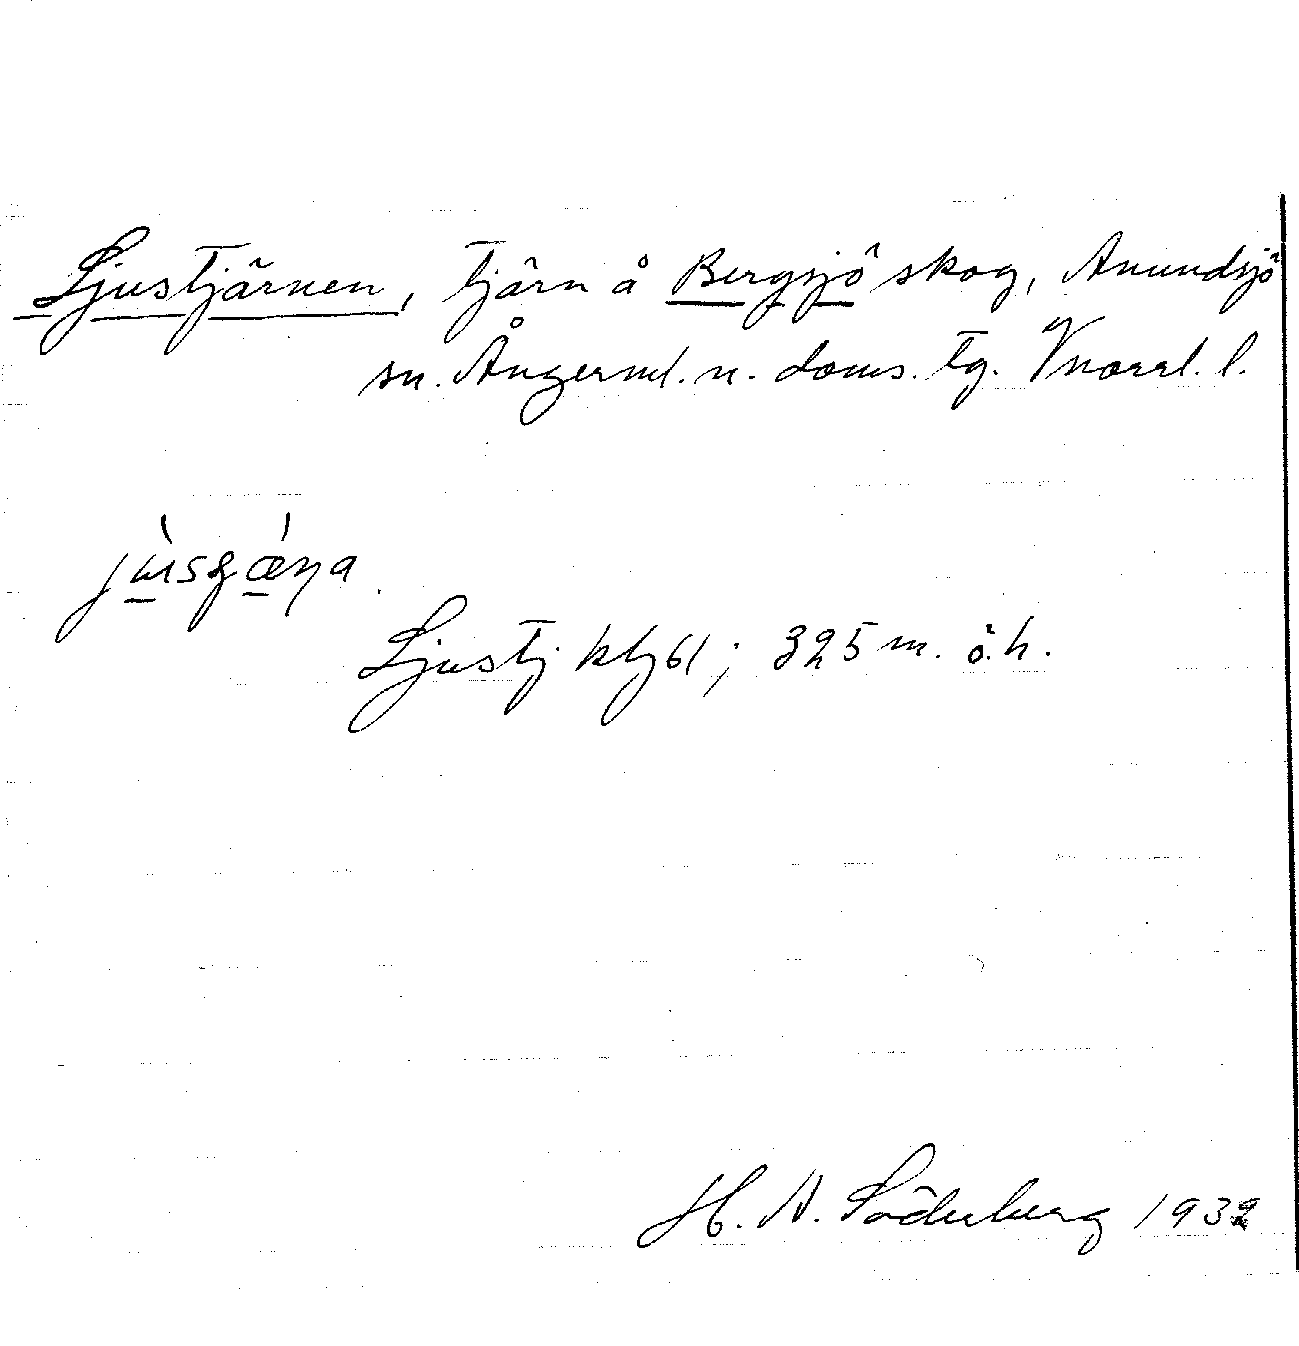 Ljustjärnen, tjärn å Bergsjö skog, Anundsjö
sn. Ångerml. n. doms. tg. Vnorrl. l.
Ljustj ktg 61; 325 m. ö. h.
H. A. Söderberg 1932